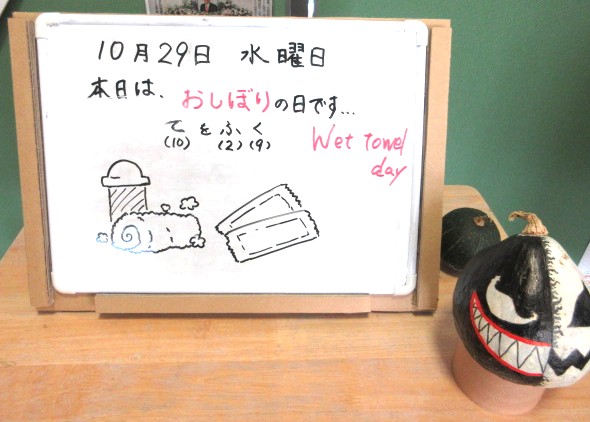 10月29日 水曜日
本日は、おしぼりの日です...
てをふく
(10) (2)(9)
Wet towel
day